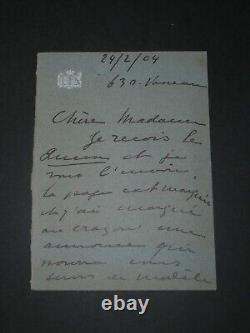 29/2/04
63 r. Vaneau
Chère Madame
Je reçois le
et je
vous l'envoie
la page est marquée
et j'ai marqué
au crayon une
annonce qui
pourra vous
servir de modèle